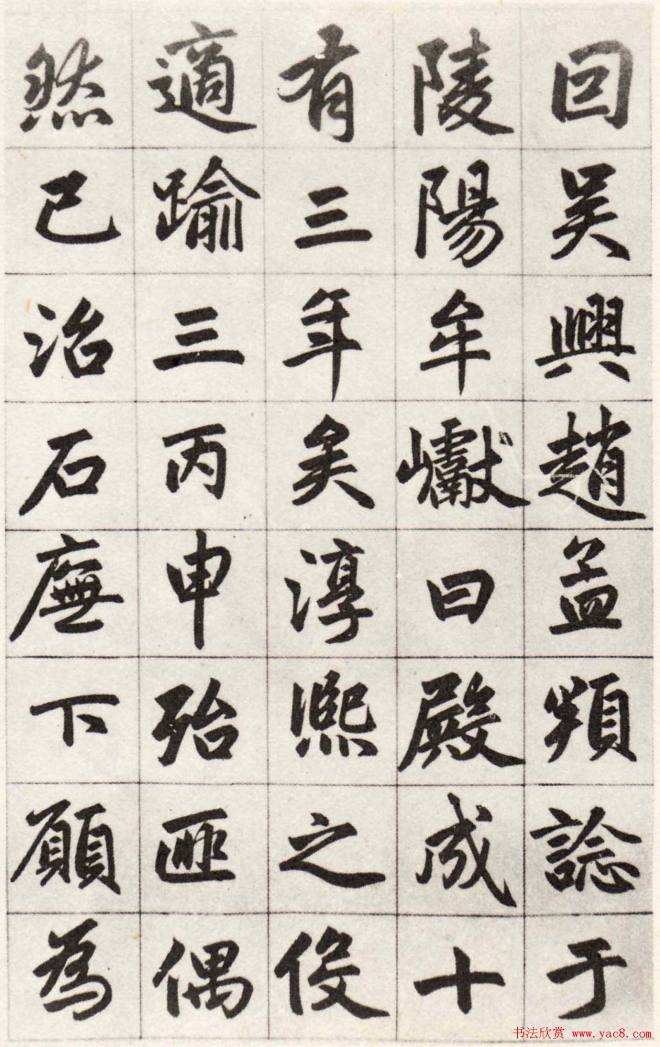 回吴興趙孟頫諗于
陵陽牟巘曰殿成十
有三年矣淳熙之役
適踰三丙申殆匪偶
然已治石廡下願為
书法欣赏 www.yac8.com